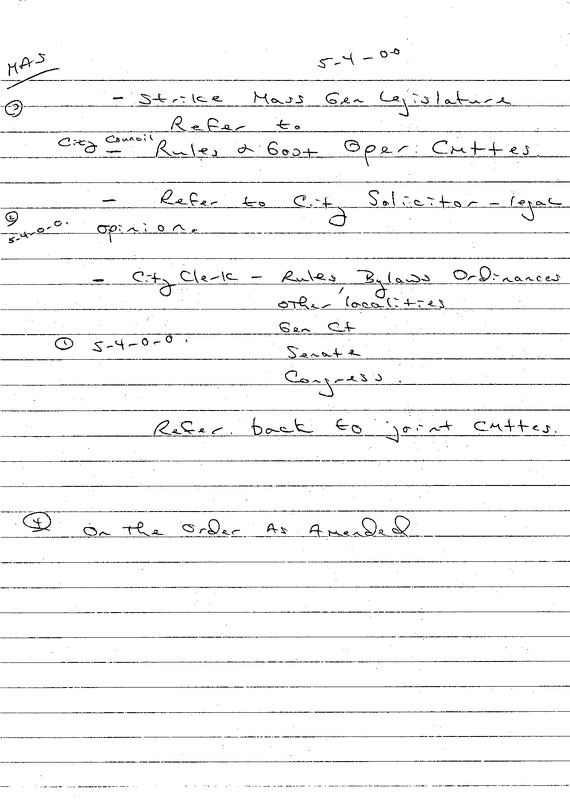 MAS
5-4-0-0
③ - Strike Mass Gen Legislature
Refer to
City Council Rules & Govt Oper. CMttes.
- Refer to City Solicitor - legal
② 5-4-0-0. opinion.
- City Clerk - Rules, Bylaws Ordinances
other localities
Gen Ct
① 5-4-0-0.
Senate
Congress.
Refer. back to joint CMttes.
④ On The Order As Amended